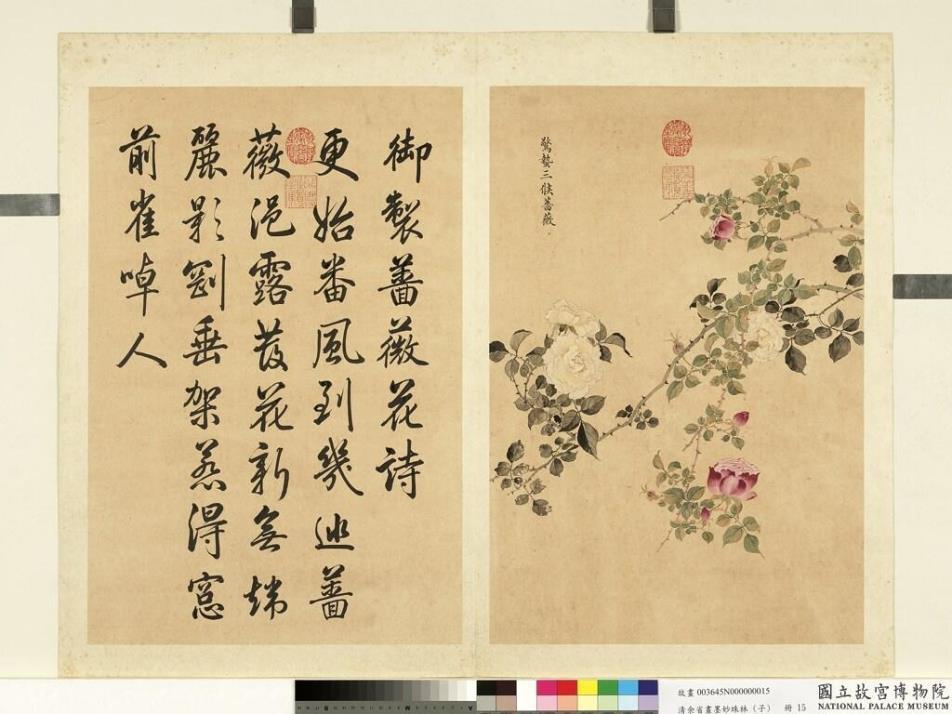 御製薔薇花詩
更始番風到幾巡薔
薇浥露發花新無端
麗影剛垂架惹得窓
前雀啅人
驚蟄三候薔薇。
故畫 003645N000000015
清余省畫墨妙珠林（子） 冊 15
國立故宮博物院
NATIONAL PALACE MUSEUM